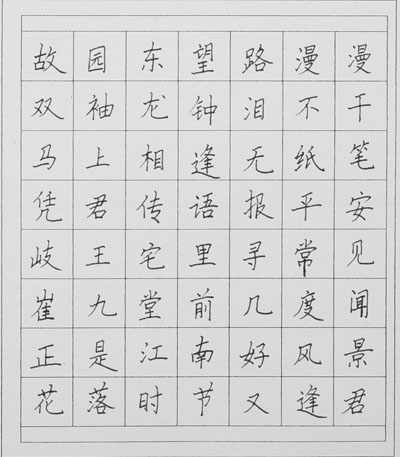 故园东望路漫漫
双袖龙钟泪不干
马上相逢无纸笔
凭君传语报平安
岐王宅里寻常见
崔九堂前几度闻
正是江南好风景
花落时节又逢君